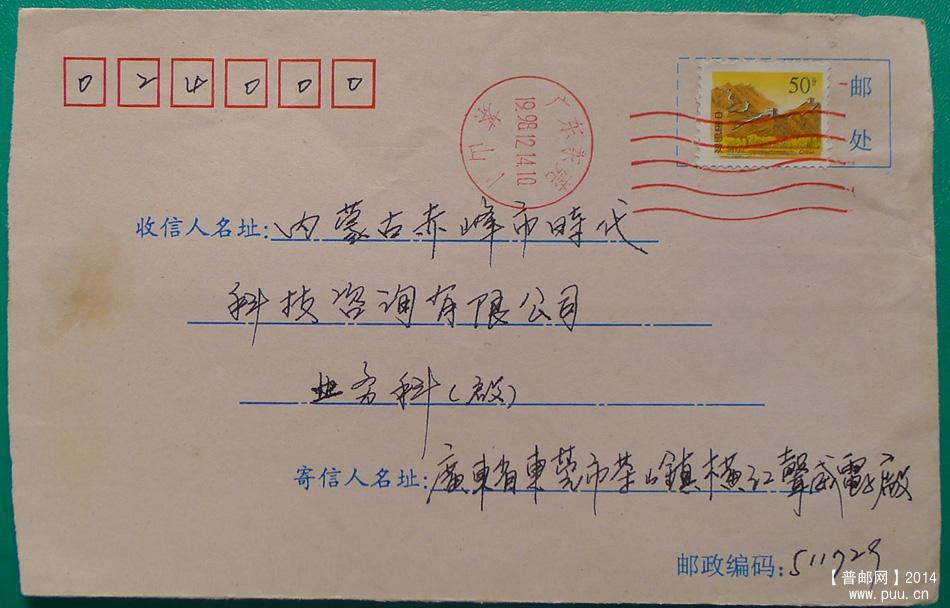 024000
50分
中国邮政
邮
处
广东东莞
1998.12.14.10
茶山
收信人名址:内蒙古赤峰市時代
科技咨询有限公司
业务科(啟)
寄信人名址:廣東省東莞市茶山鎮横江聲威電子廠
邮政编码:511729
【普邮网】2014
www.puu.cn